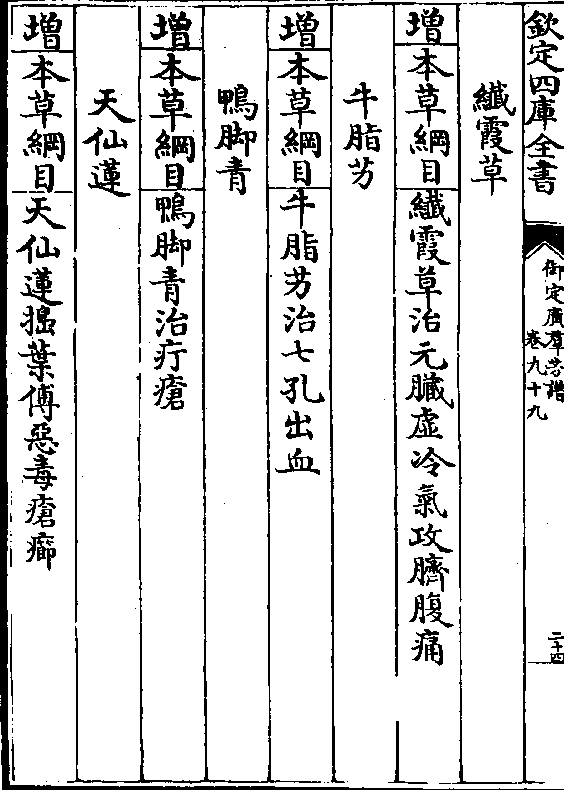 欽定四庫全書
御定廣羣芳譜
卷九十九
二十四
纎霞草
增本草綱目纎霞草治元臟虛冷氣攻臍腹痛
牛脂芀
增本草綱目牛脂芀治七孔出血
鴨脚青
增本草綱目鴨脚青治疔瘡
天仙蓮
增本草綱目天仙蓮搗葉傅惡毒瘡癤